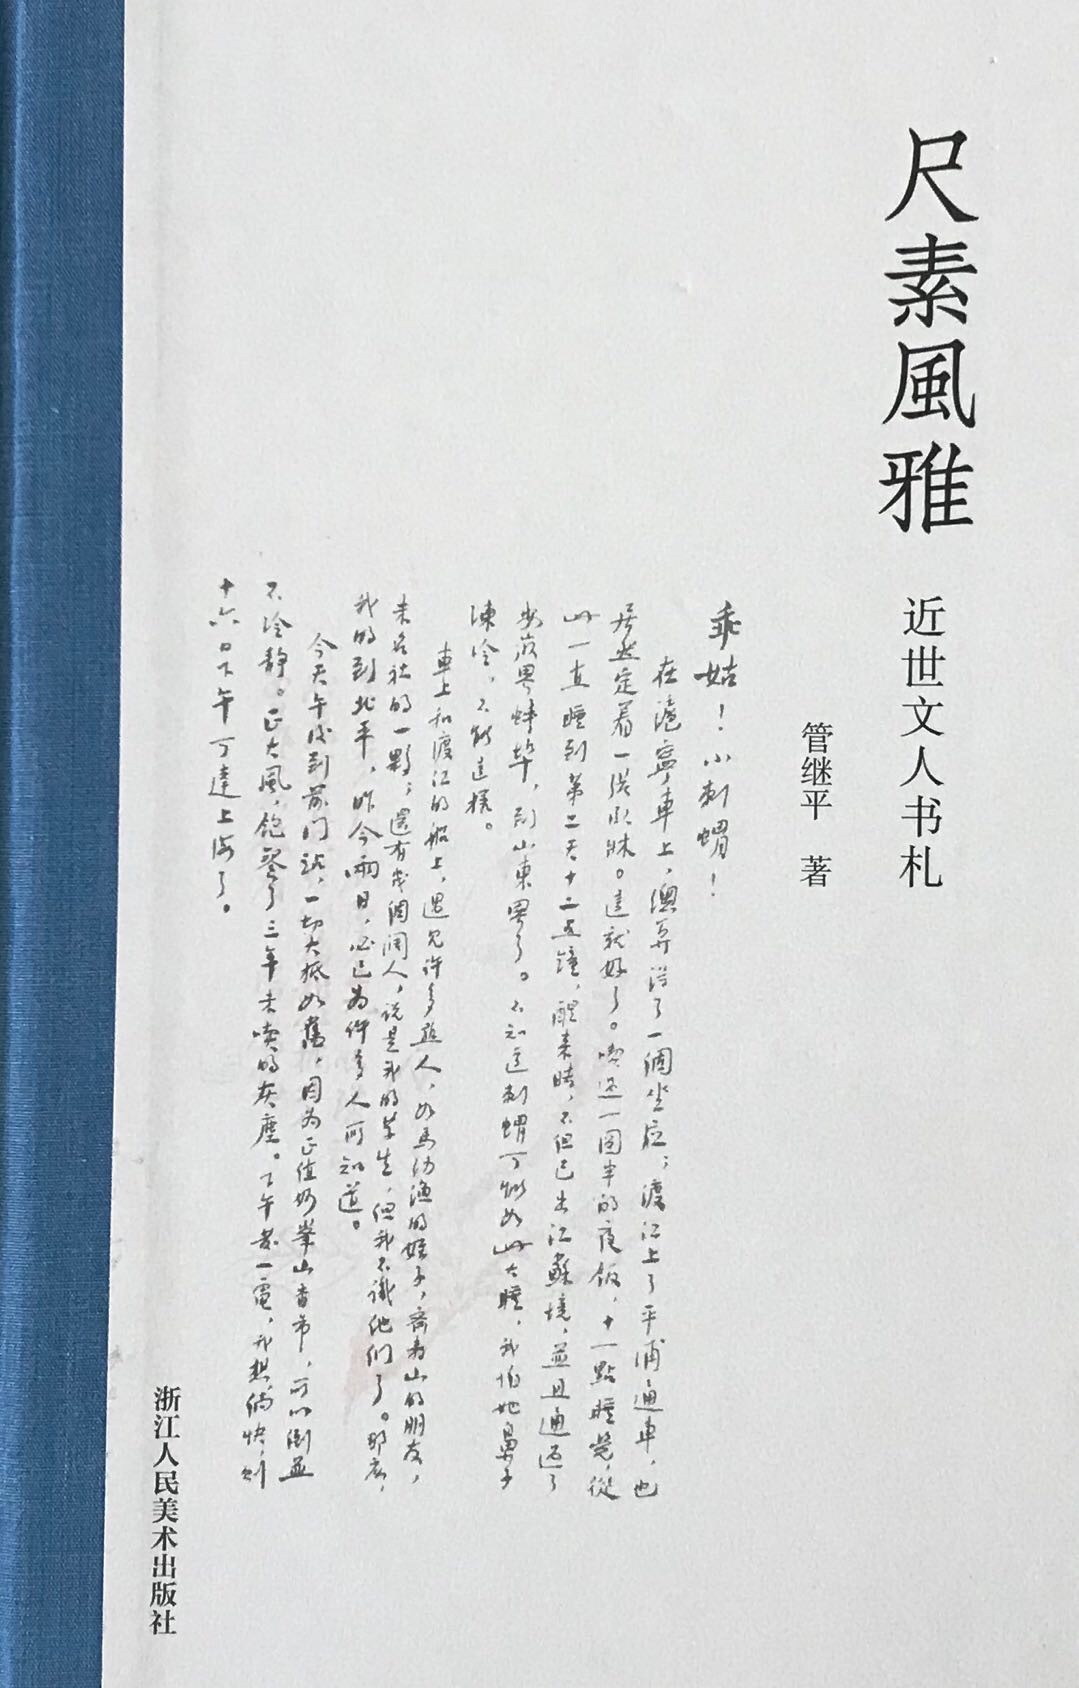 尺素風雅
近世文人书札
管继平 著
乖姑！小刺蝟！
在滬寧車上，總算得了一個坐位；渡江上了平浦通車，也
居然定着一張臥牀。這就好了。喫過一圓半的夜飯，十一點睡覺，從
此一直睡到第二天十二點鐘，醒來時，不但已出江蘇境，並且通過了
安徽界蚌埠，到山東界了。不知道刺蝟可能如此大睡，我怕她鼻子
凍冷，不能這樣。
車上和渡江的船上，遇見許多熟人，如馬幼漁的姪子，齊壽山的朋友，
未名社的一夥；還有幾個闊人，說是我的學生，但我不識他們了。那麽，
我的到北平，昨今兩日，必已为許多人所知道。
今天午後到前门站，一切大抵如舊，因为正值妙峯山香市，所以倒並
不冷靜。正大風，飽餐了三年未喫的灰塵。下午發一電，我想，倘快，則
十六日下午可達上海了。
浙江人民美术出版社